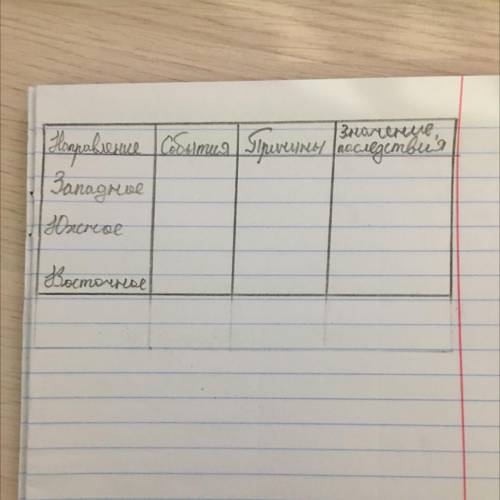 Направление События Причины Значение, последствия
Западное
Южное
Восточное